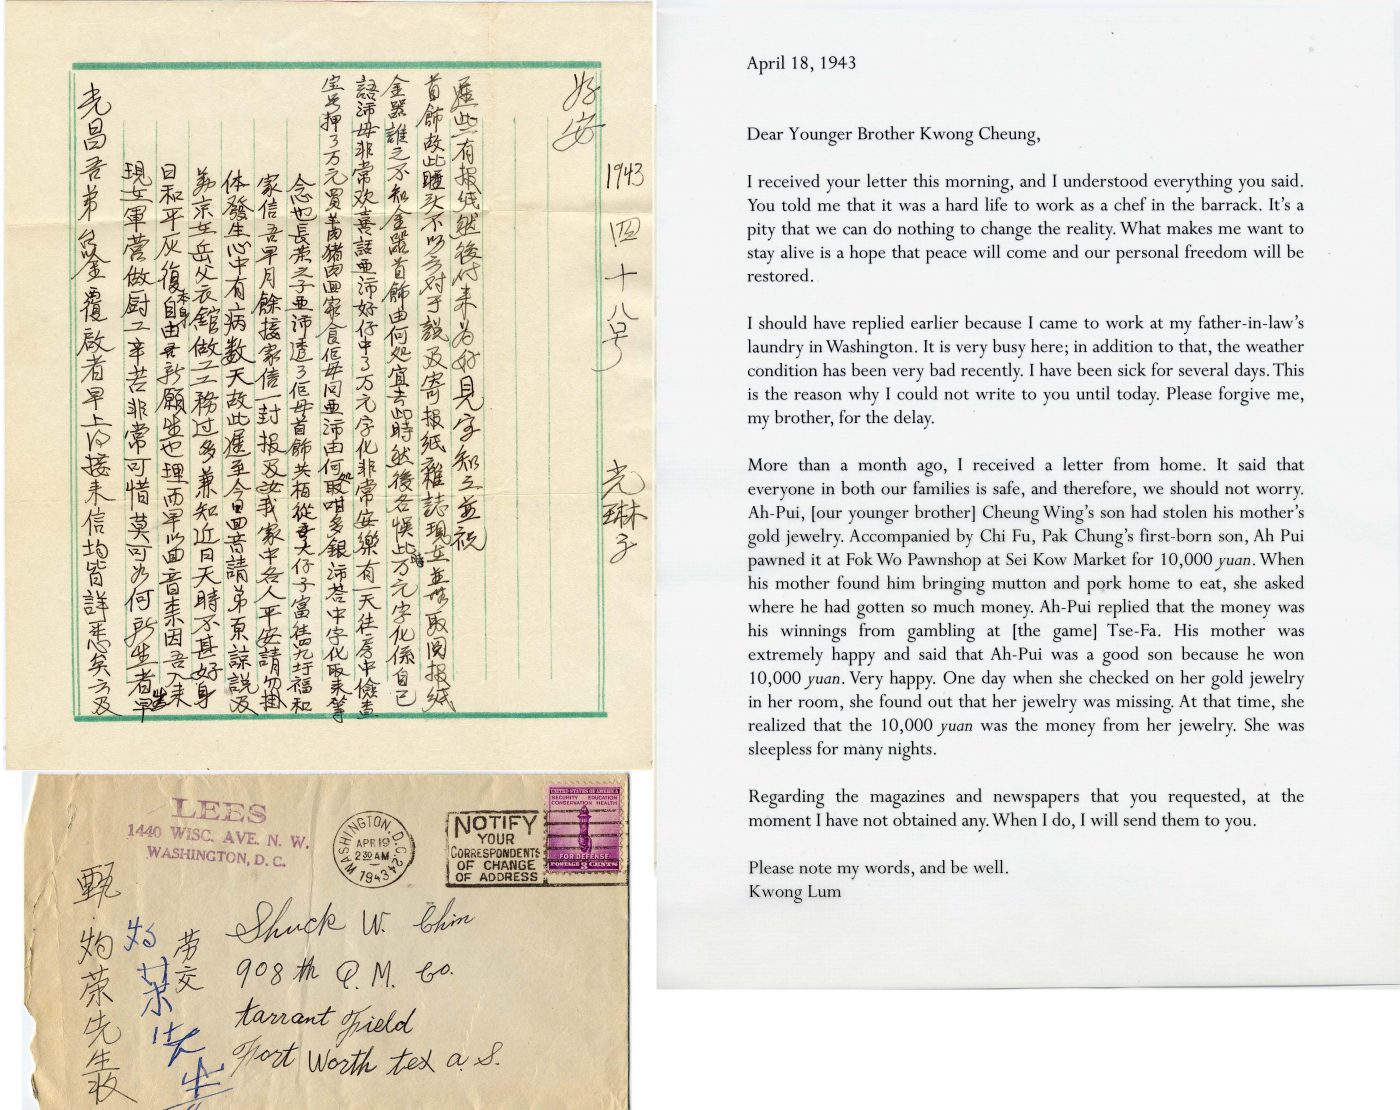 光昌吾弟鑒覆啟者早上的接来信均皆詳悉矣云及
現在軍营做厨工辛苦非常可惜莫可如何所生者早
日和平灰復自由所願生也理而早以回音来因吾入来
京在岳父衣舘做工工務过多兼知近日天時不甚好身
体發生心中有病数天故此遲至今日回音請弟原諒説及
家信吾早月餘接家信一封报及汝我家中各人平安請勿掛
念也長荣之子亜沛透了佢母首飾共栢從大仔子富往四九圩福和
宝号押了万元買羊肉猪肉回家食佢母问亜沛由何処取咁多銀沛荅中字化取来等
語沛母非常欢喜話亜沛好仔中了万元字化非常安樂有一天往房中儉查
金器誰之不知金器首飾由何処宜去此時然後各悞此万元字化係自己
首飾故此睡头不以云对于説及寄报紙雜誌現在並無取阅报紙
遲些有报紙然後付来為好見字知之並祝
好安
1943 四 十八号
光琳子
LEES
1440 WISC. AVE. N. W.
WASHINGTON, D. C.
WASHINGTON, D.C.
APR 19
2 30 AM
1943
NOTIFY
YOUR
CORRESPONDENTS
OF CHANGE
OF ADDRESS
UNITED STATES OF AMERICA
SECURITY EDUCATION
CONSERVATION HEALTH
FOR DEFENSE
POSTAGE 3 CENTS
甄灼荣先生收
灼荣先生
劳交
Shuck W. Chin
908 th Q. M. Co.
tarrant Field
Fort Worth tex a. S.
April 18, 1943
Dear Younger Brother Kwong Cheung,
I received your letter this morning, and I understood everything you said.
You told me that it was a hard life to work as a chef in the barrack. It's a
pity that we can do nothing to change the reality. What makes me want to
stay alive is a hope that peace will come and our personal freedom will be
restored.
I should have replied earlier because I came to work at my father-in-law's
laundry in Washington. It is very busy here; in addition to that, the weather
condition has been very bad recently. I have been sick for several days. This
is the reason why I could not write to you until today. Please forgive me,
my brother, for the delay.
More than a month ago, I received a letter from home. It said that
everyone in both our families is safe, and therefore, we should not worry.
Ah-Pui, [our younger brother] Cheung Wing's son had stolen his mother's
gold jewelry. Accompanied by Chi Fu, Pak Chung's first-born son, Ah Pui
pawned it at Fok Wo Pawnshop at Sei Kow Market for 10,000 yuan. When
his mother found him bringing mutton and pork home to eat, she asked
where he had gotten so much money. Ah-Pui replied that the money was
his winnings from gambling at [the game] Tse-Fa. His mother was
extremely happy and said that Ah-Pui was a good son because he won
10,000 yuan. Very happy. One day when she checked on her gold jewelry
in her room, she found out that her jewelry was missing. At that time, she
realized that the 10,000 yuan was the money from her jewelry. She was
sleepless for many nights.
Regarding the magazines and newspapers that you requested, at the
moment I have not obtained any. When I do, I will send them to you.
Please note my words, and be well.
Kwong Lum